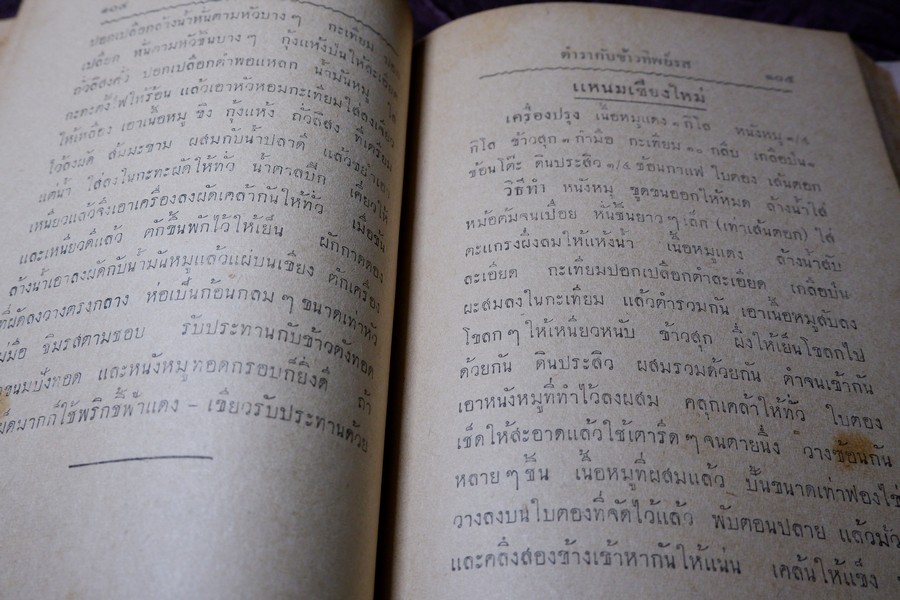 ๑๐๔
ปอกเปลือกล้างน้ำหั่นตามหัวบางๆ กะเทียม
เปลือก หั่นตามหัวชิ้นบางๆ กุ้งแห้งป่นให้ละเอียด
ถั่วลิสงคั่ว ปอกเปลือกตำพอแหลก น้ำมันหมู ใส่
กะทะตั้งไฟให้ร้อน แล้วเอาหัวหอมกะเทียมใส่ลงเจียว
ให้เหลือง เอาเนื้อหมู ขิง กุ้งแห้ง ถั่วลิสง ที่เตรียม
ไว้ลงผัด ส้มมะขาม ผสมกับน้ำปลาดี แล้วขยำเอา
แต่น้ำ ใส่ลงในกะทะผัดให้ทั่ว น้ำตาลปีก เคี่ยวให้
เหนียวแล้วจึงเอาเครื่องลงผัดเคล้ากันให้ทั่ว เมื่อข้น
และเหนียวดีแล้ว ตักขึ้นพักไว้ให้เย็น ผักกาดดอง
ล้างน้ำเอาลงผัดกับน้ำมันหมูแล้วแผ่บนเขียง ตักเครื่อง
ที่ผัดลงวางตรงกลาง ห่อเป็นก้อนกลมๆ ขนาดเท่าหัว
แม่มือ ชิมรสตามชอบ รับประทานกับข้าวตังทอด
ขนมปังทอด และหนังหมูทอดกรอบก็ยิ่งดี ถ้า
เผ็ดมากก็ใช้พริกชี้ฟ้าแดง – เขียวรับประทานด้วย
ตำรากับข้าวทิพย์รส
๑๐๕
แหนมเชียงใหม่
เครื่องปรุง เนื้อหมูแดง ๑ กิโล หนังหมู ๑/๔
กิโล ข้าวสุก ๑ กำมือ กะเทียม ๑๐ กลีบ เกลือป่น ๑
ช้อนโต๊ะ ดินประสิว ๑/๔ ช้อนกาแฟ ใบตอง เส้นตอก
วิธีทำ หนังหมู ขูดขนออกให้หมด ล้างน้ำใส่
หม้อต้มจนเปื่อย หั่นชิ้นยาวๆ เล็ก (เท่าเส้นตอก) ใส่
ตะแกรงผึ่งลมให้แห้งน้ำ เนื้อหมูแดง ล้างน้ำสับ
ละเอียด กะเทียมปอกเปลือกตำละเอียด เกลือป่น
ผะสมลงในกะเทียม แล้วตำรวมกัน เอาเนื้อหมูสับลง
โขลกๆ ให้เหนียวหนับ ข้าวสุก ผึ่งให้เย็นโขลกไป
ด้วยกัน ดินประสิว ผสมรวมด้วยกัน ตำจนเข้ากัน
เอาหนังหมูที่ทำไว้ลงผสม คลุกเคล้าให้ทั่ว ใบตอง
เช็ดให้สะอาดแล้วใช้เตารีดๆ จนตายนึ่ง วางซ้อนกัน
หลายๆ ชั้น เนื้อหมูที่ผสมแล้ว ปั้นขนาดเท่าฟองไข่
วางลงบนใบตองที่จัดไว้แล้ว พับตอนปลาย แล้วม้วน
และคลึงสองข้างเข้าหากันให้แน่น เคล้นให้แข็ง